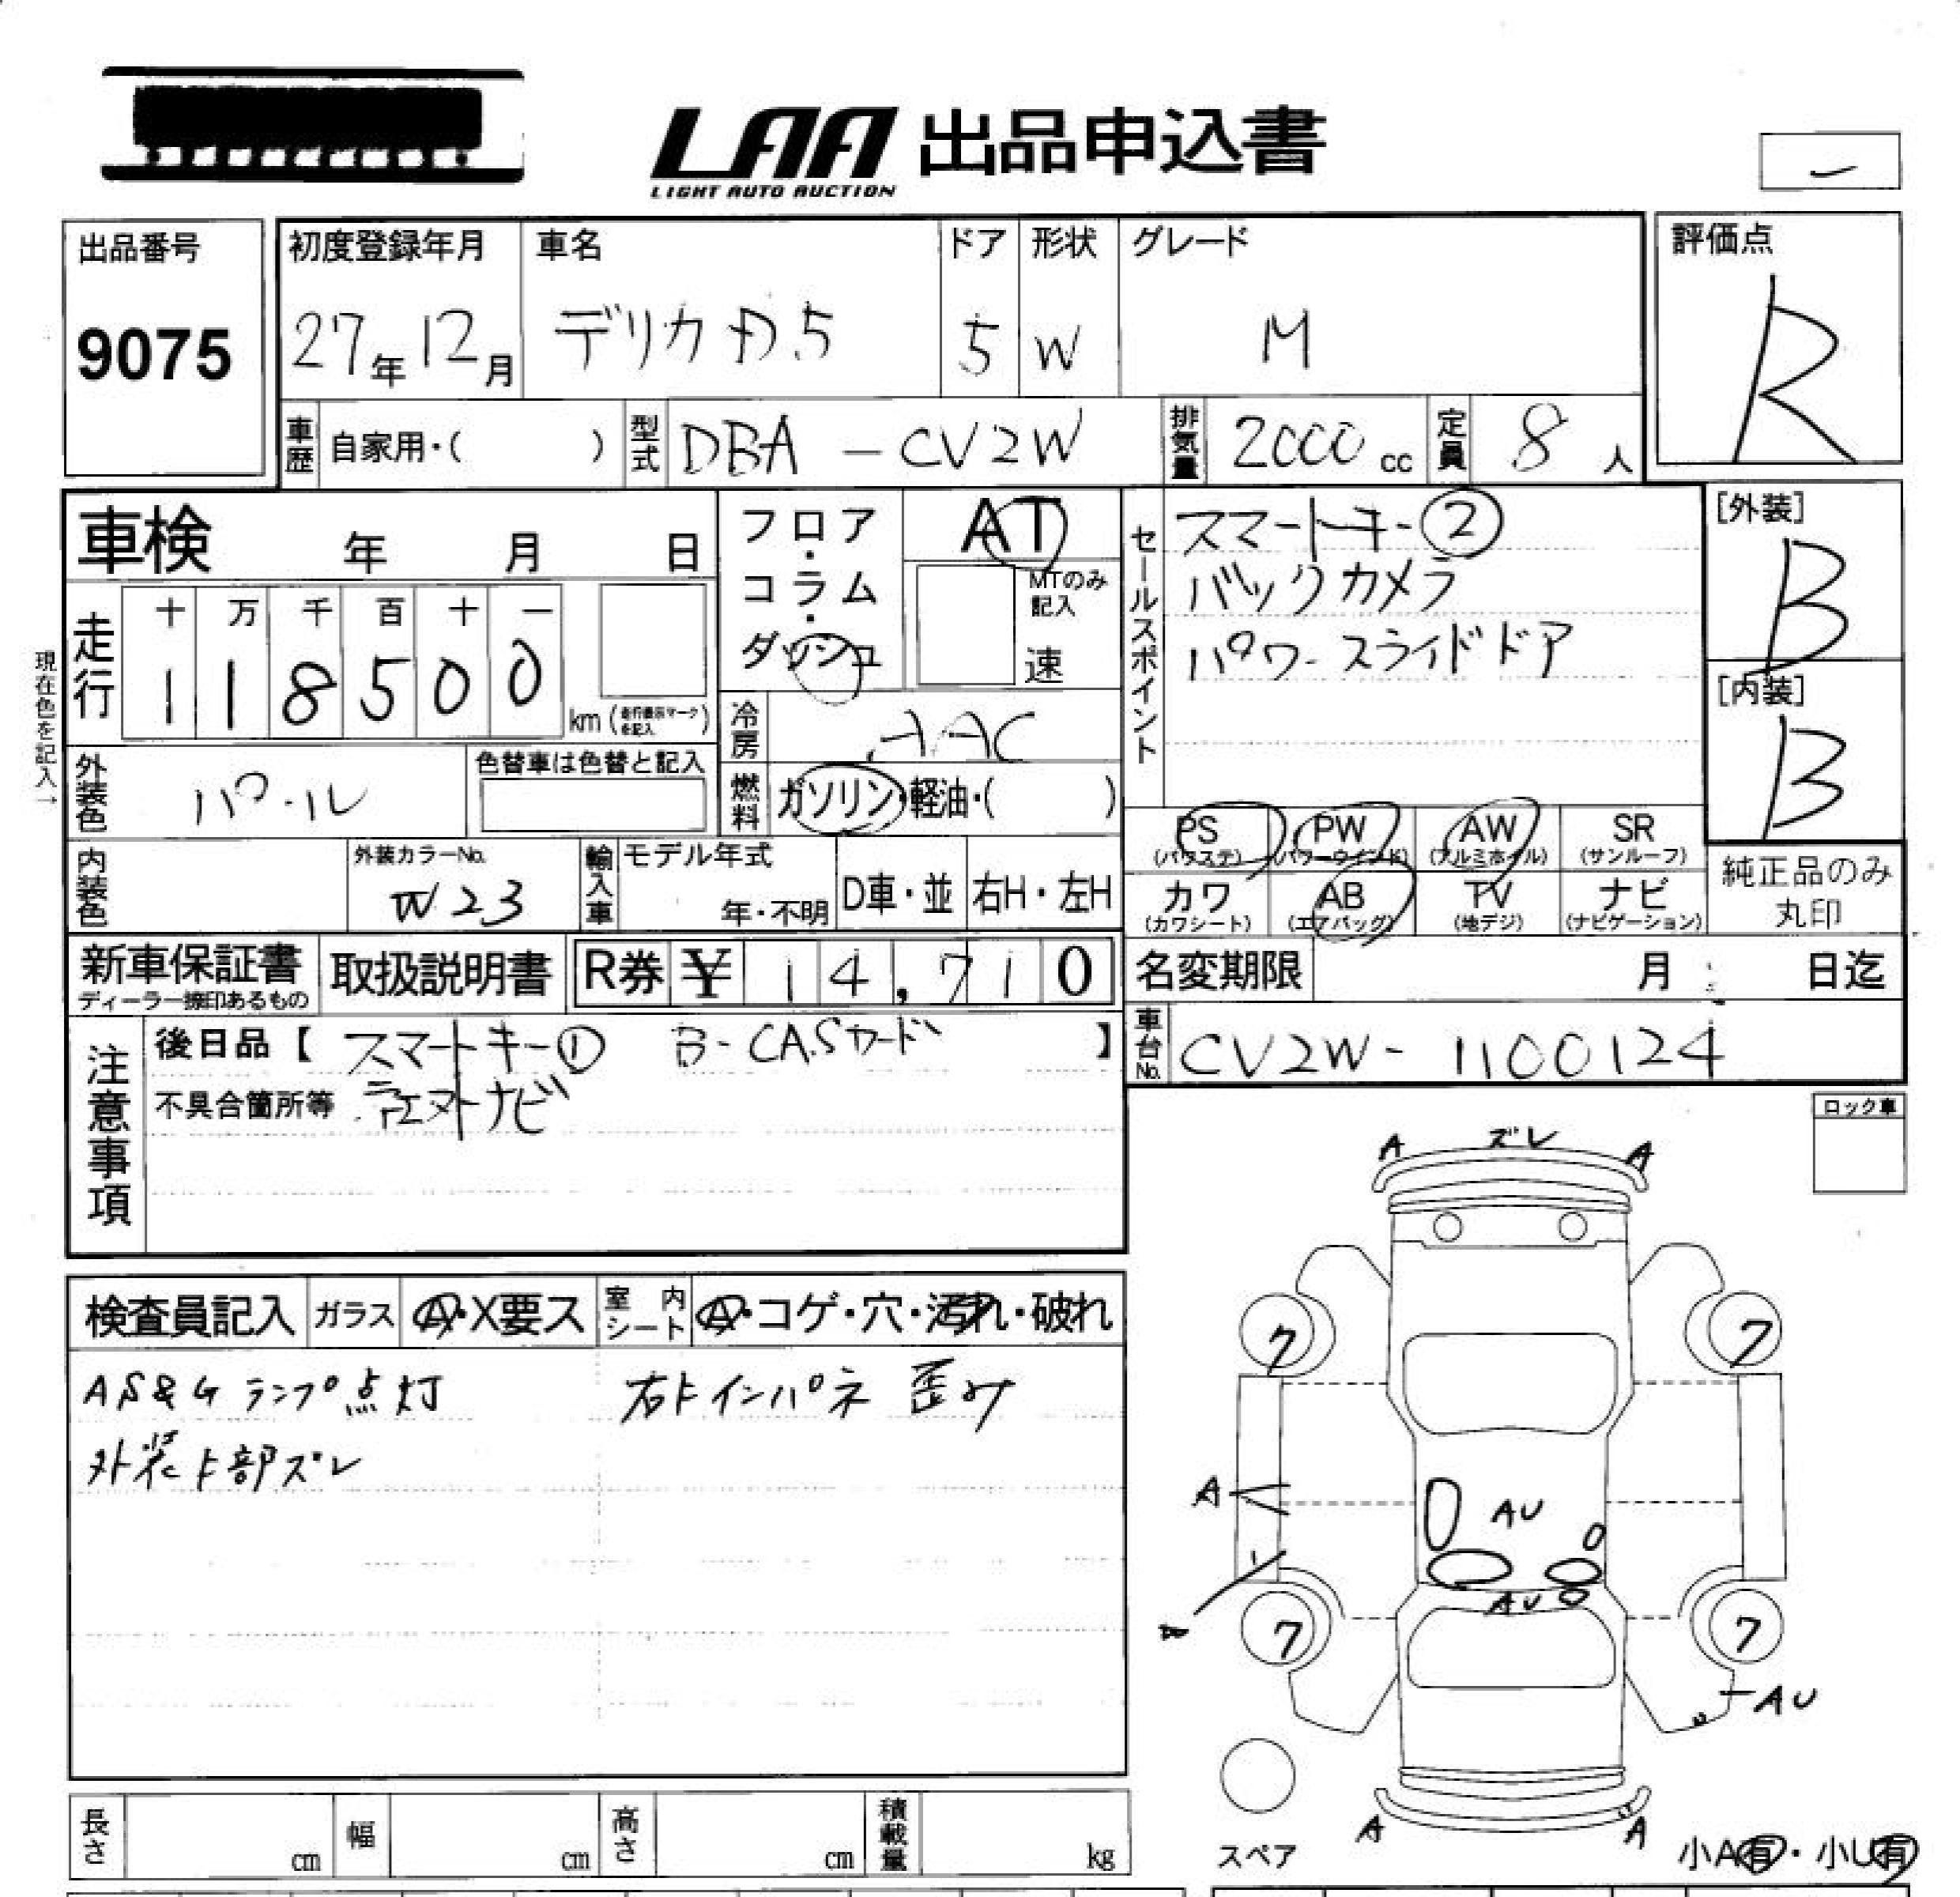 LAA 出品申込書
LIGHT AUTO AUCTION
出品番号
9075
初度登録年月
27年12月
車名
デリカD.5
ドア
5
形状
W
グレード
M
評価点
R
車歴 自家用・( )
型式 DBA - CV2W
排気量 2000 cc
定員 8 人
車検 年 月 日
フロア・コラム・ダッシュ
AT
MTのみ記入
速
セールスポイント
スマートキー②
バックカメラ
パワースライドドア
[外装]
B
[内装]
B
現在色を記入→
走行
十 万 千 百 十 一
1 1 8 5 0 0
km (走行表示マークを記入)
冷房 AAC
燃料 ガソリン・軽油・( )
外装色 パール
色替車は色替と記入
内装色
外装カラーNo.
W23
輸入車
モデル年式
年・不明
D車・並
右H・左H
PS (パワステ)
PW (パワーウインド)
AW (アルミホイル)
SR (サンルーフ)
カワ (カワシート)
AB (エアバッグ)
TV (地デジ)
ナビ (ナビゲーション)
純正品のみ丸印
新車保証書
ディーラー捺印あるもの
取扱説明書
R券 ¥ 14,710
名変期限 月 日迄
車台No. CV2W - 1100124
注意事項
後日品【 スマートキー① B-CASカード 】
不具合箇所等 ナビ
ロック車
検査員記入
ガラス A・X要ス
室内シート A・コゲ・穴・汚れ・破れ
AS&G ランプ点灯 右トインパネ 歪み
外装ト部ズレ
A ズレ A
7 7
A
AU
AU
7 7
AU
A A
スペア
小A有・小U有
長さ cm
幅 cm
高さ cm
積載量 kg